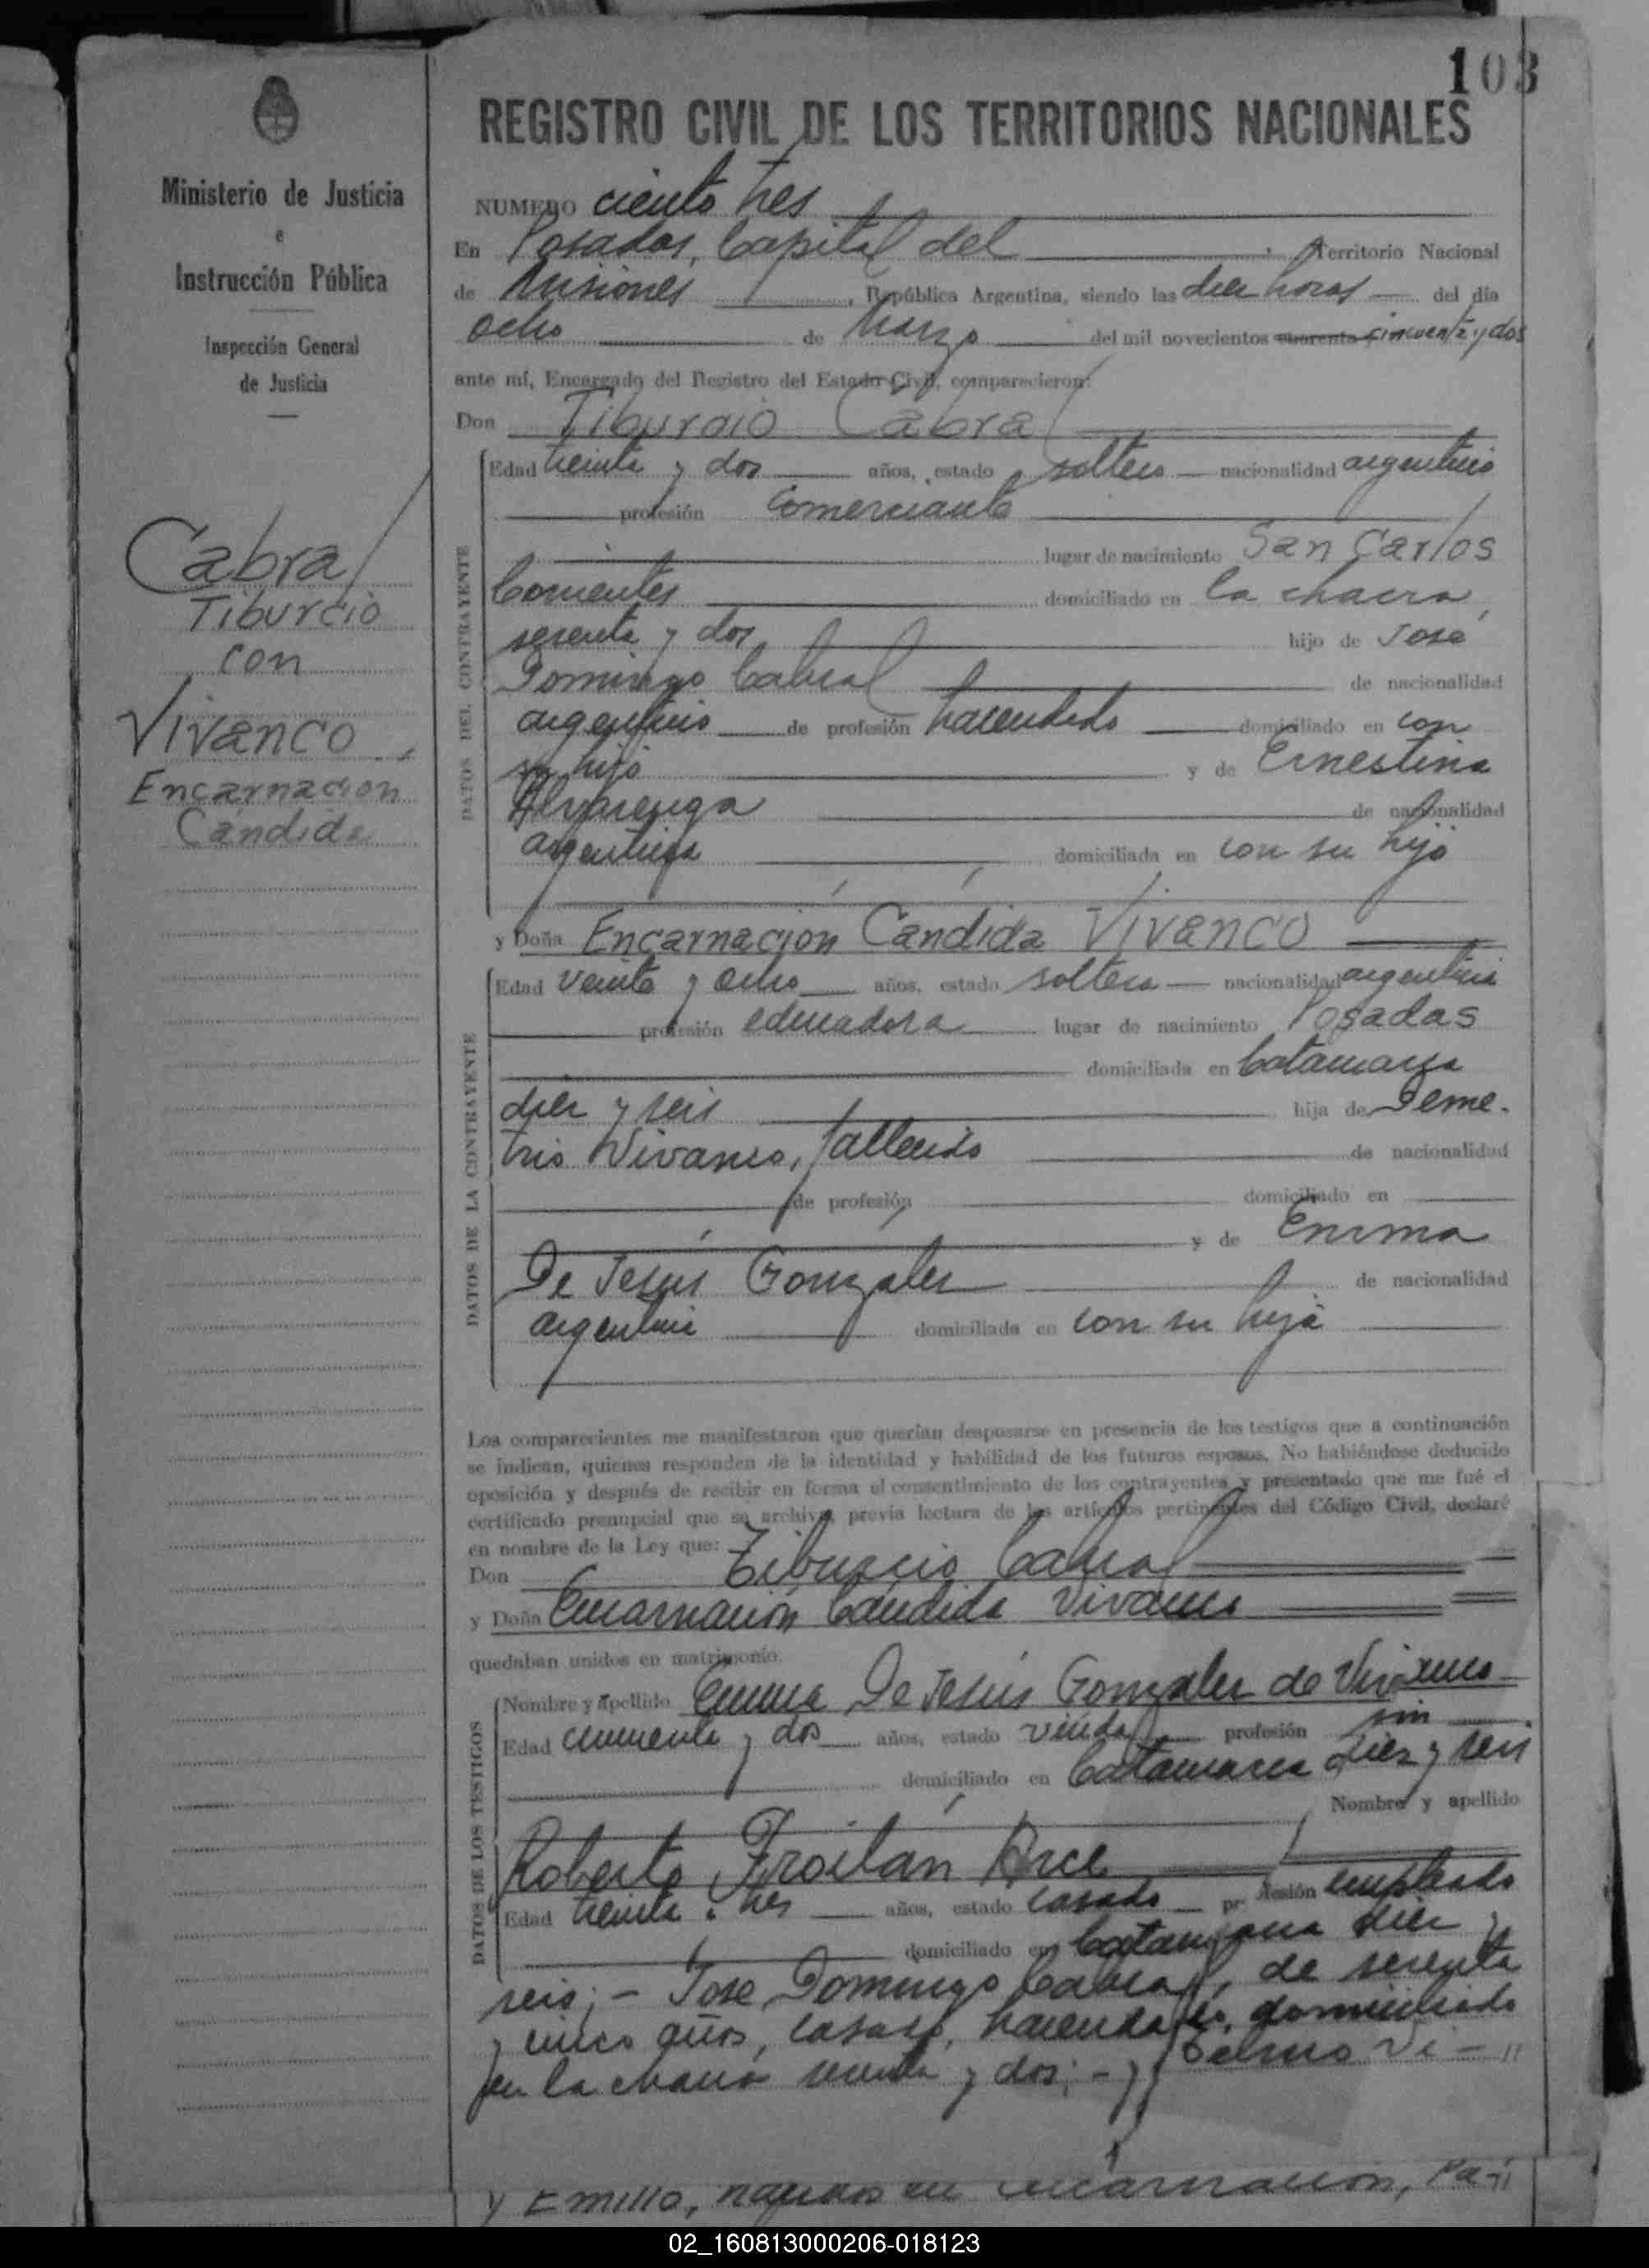 103
REGISTRO CIVIL DE LOS TERRITORIOS NACIONALES
Ministerio de Justicia
e
Instrucción Pública
Inspección General
de Justicia
Cabral
Tiburcio
con
Vivanco,
Encarnacion
Cándida
NUMERO ciento tres
En Posadas, Capital del Territorio Nacional
de Misiones, República Argentina, siendo las diez horas del día
ocho de Marzo del mil novecientos cuarenta cincuenta y dos
ante mí, Encargado del Registro del Estado Civil, comparecieron:
Don Tiburcio Cabral
DATOS DEL CONTRAYENTE
Edad treinta y dos años, estado soltero nacionalidad argentino
profesión Comerciante
lugar de nacimiento San Carlos
Corrientes domiciliado en la chacra,
sesenta y dos hijo de José
Domingo Cabral de nacionalidad
argentino de profesión hacendado domiciliado en con
su hijo y de Ernestina
Alvarenga de nacionalidad
argentina domiciliada en con su hijo
y Doña Encarnación Cándida Vivanco
DATOS DE LA CONTRAYENTE
Edad veinte y ocho años, estado soltera nacionalidad argentina
profesión educadora lugar de nacimiento Posadas
domiciliada en Catamarca
diez y seis hija de Deme-
trio Vivanco, fallecido de nacionalidad
de profesión domiciliado en
y de Emma
De Jesús Gonzalez de nacionalidad
argentina domiciliada en con su hija
Los comparecientes me manifestaron que querían desposarse en presencia de los testigos que a continuación
se indican, quienes responden de la identidad y habilidad de los futuros esposos. No habiéndose deducido
oposición y después de recibir en forma el consentimiento de los contrayentes y presentado que me fué el
certificado prenupcial que se archiva previa lectura de los artículos pertinentes del Código Civil, declaré
en nombre de la Ley que:
Don Tiburcio Cabral
y Doña Encarnación Cándida Vivanco
quedaban unidos en matrimonio.
DATOS DE LOS TESTIGOS
Nombre y apellido Emma De Jesús Gonzalez de Vivanco
Edad cincuenta y dos años, estado viuda profesión sin
domiciliado en Catamarca diez y seis
Nombre y apellido
Roberto Froilán Arce
Edad treinta y tres años, estado casado profesión empleado
domiciliado en Catamarca diez y
seis; - José Domingo Cabral, de sesenta
y cinco años, casado, hacendado, domiciliado
en la chacra sesenta y dos; - y Delmo Vi-
y Emilio, nacidos en encarnación, Pa-
02_160813000206-018123